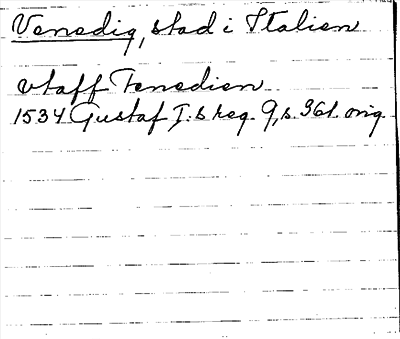 Venedig, stad i Italien
vtaff Fenedien
1534 Gustaf I:s reg. 9, s. 361. orig.